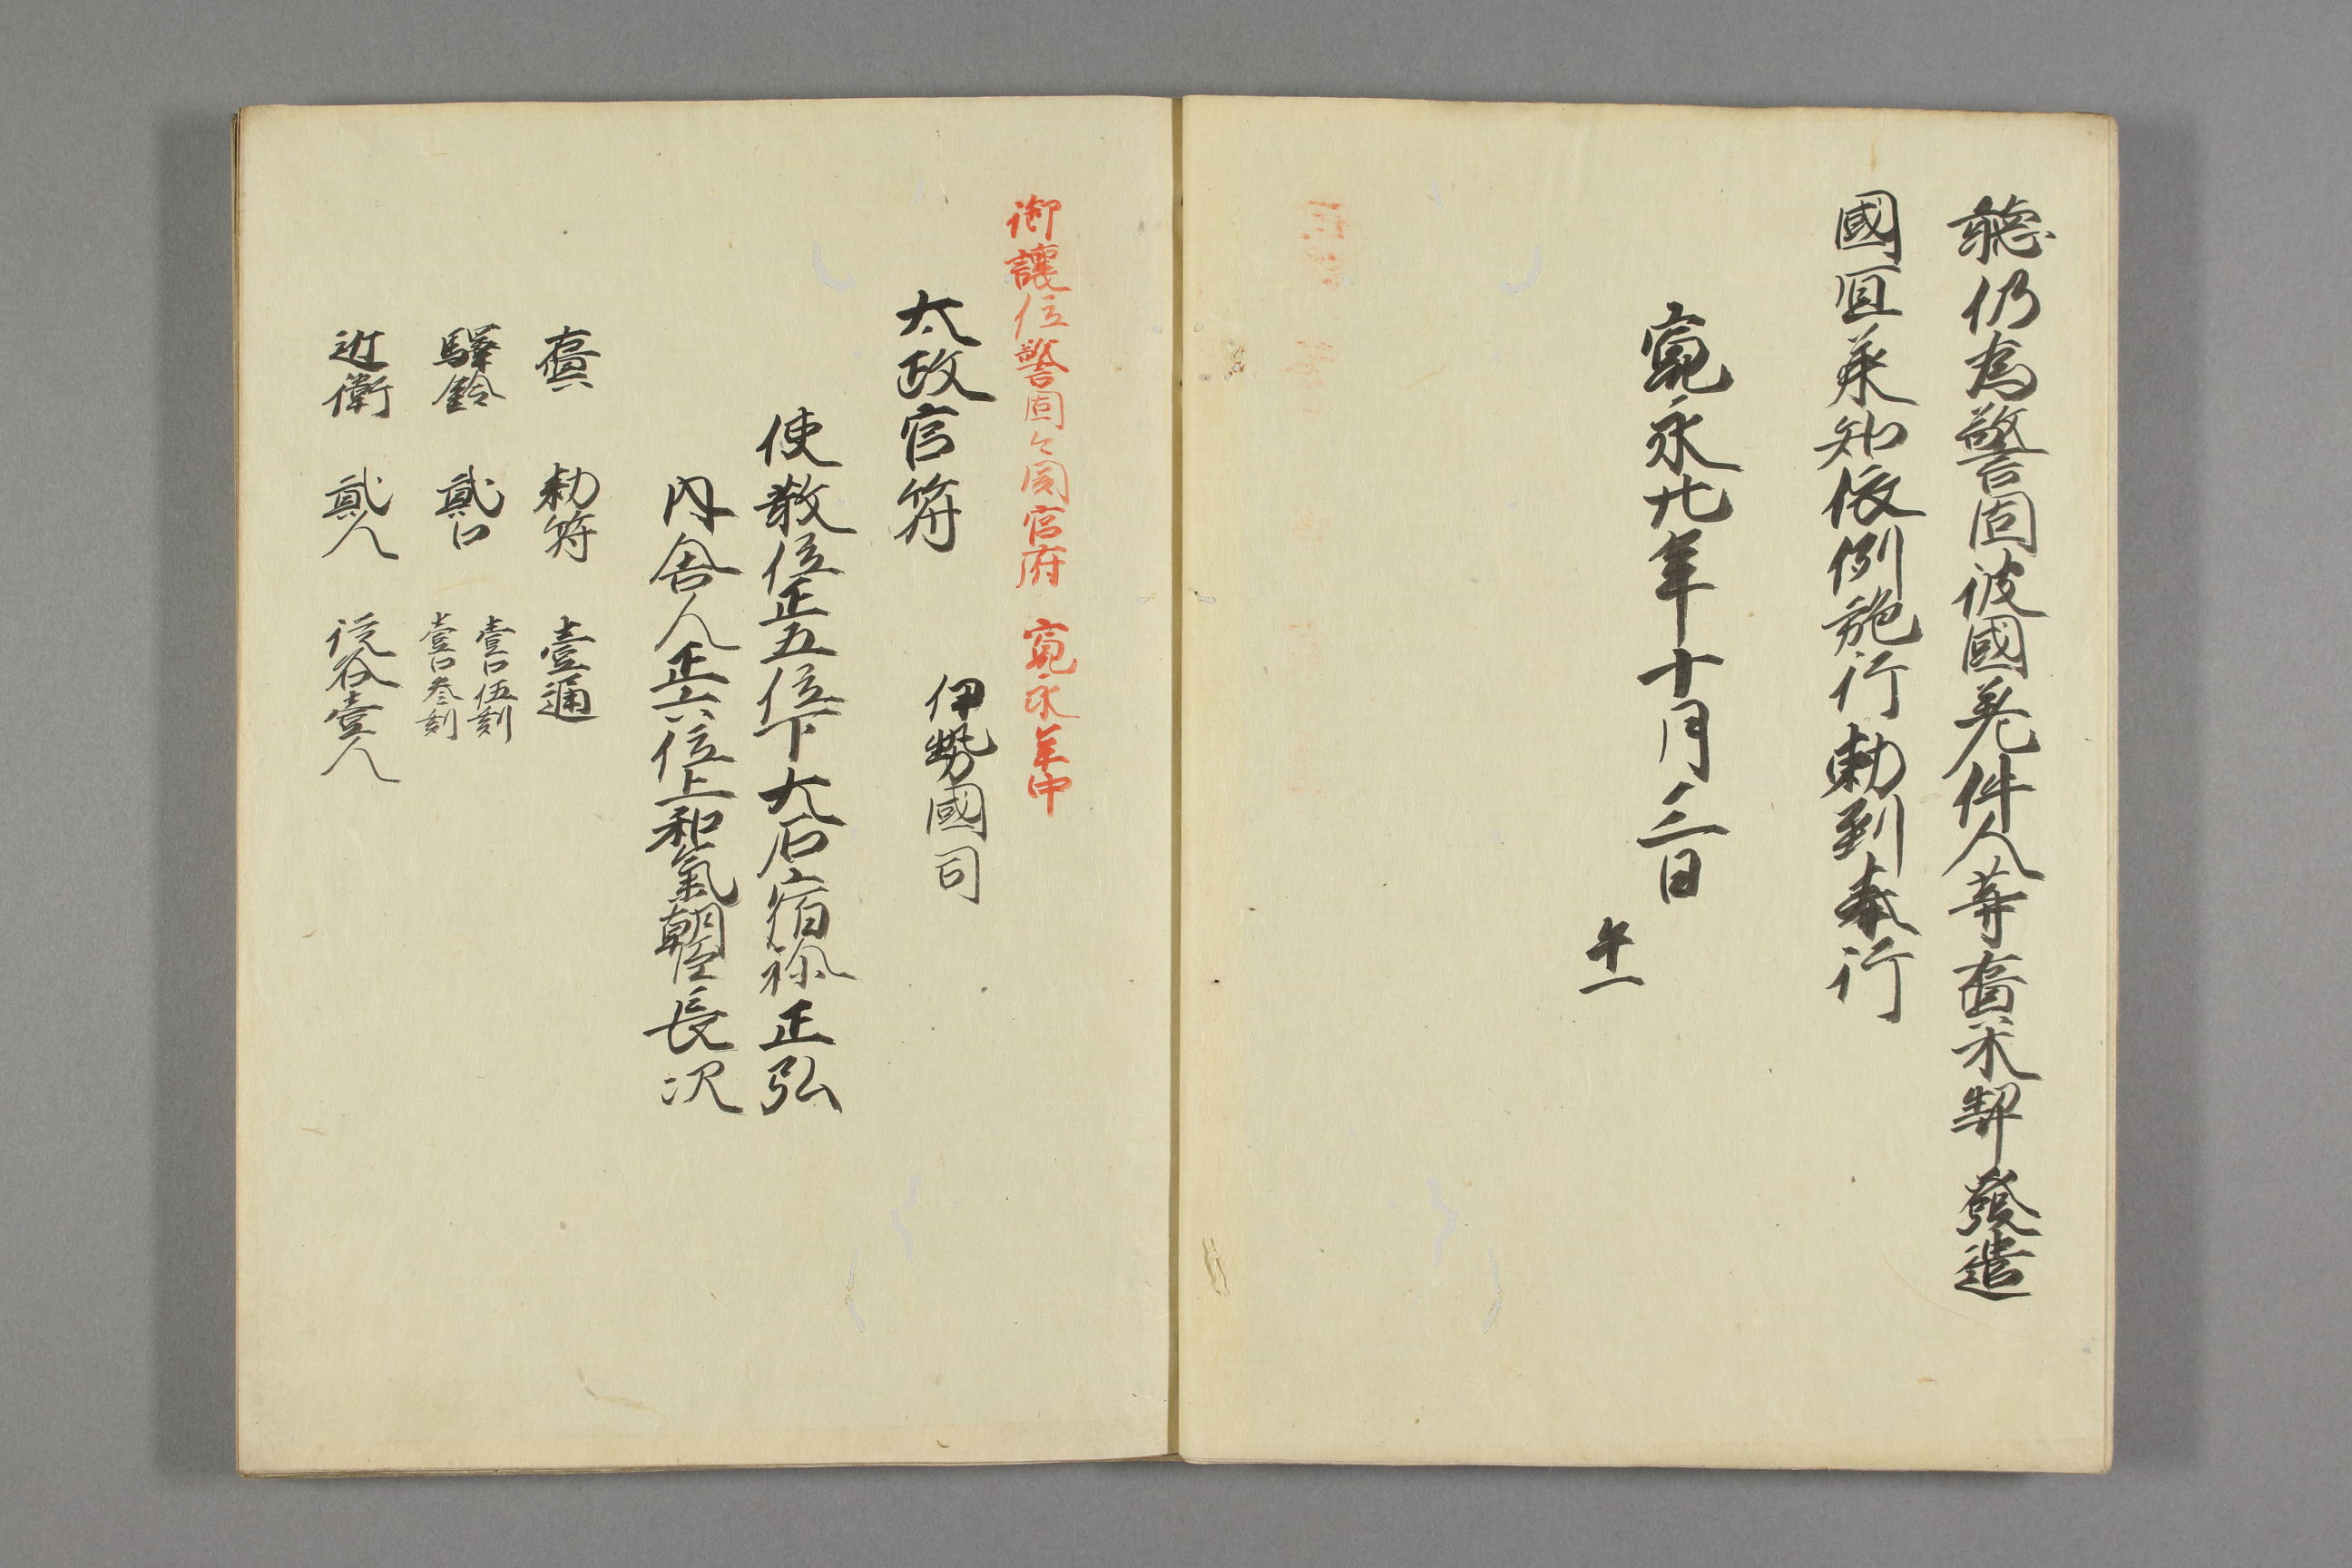 聴仍為警固彼國差件人等齎木契發遣
國冝承知依例施行勅到奉行
寛永廿年十月三日
御讓位警固々関官府 寛永年中
太政官符 伊勢國司
使散位正五位下大石宿祢正弘
内舎人正六位上和氣朝臣長次
齎 勅符 壹通
驛鈴 貳口 壹口伍剋
壹口叁剋
近衛 貳人 従各壹人